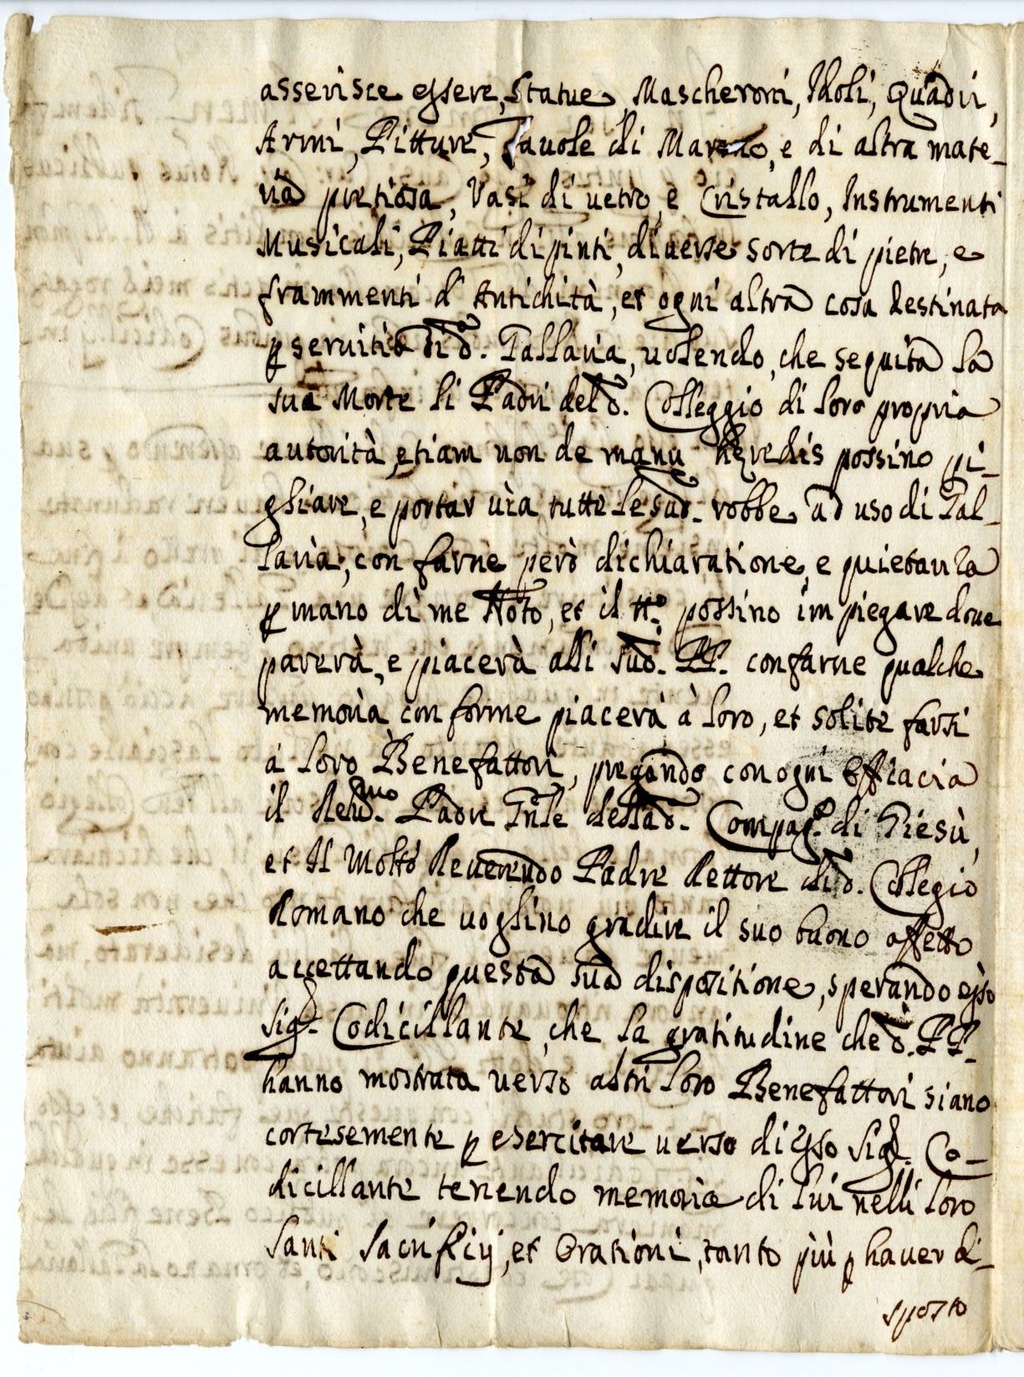 asserisce essere, Statue, Mascheroni, Idoli, Quadri,
Armi, Pitture, Tauole di Marmo, e di altra mate-
ria pretiosa, Vasi di uetro, e Cristallo, Instrumenti
Musicali, Piatti dipinti, diuerse sorte di pietre, e
frammenti d'Antichità, et ogni altra cosa destinata
p seruitio di d.ª Gallaria, uolendo, che seguita la
sua Morte li Padri del d.º Colleggio di loro propria
autorità etiam non de manu heredis possino pi-
gliare, e portar uia tutte le sud.e robbe ad uso di Gal-
laria, con farne però dichiaratione, e quietanza
p mano di me Notº, et il tt.º possino impiegare doue
parerà, e piacerà alli sud.i PP. con farne qualche
memoria conforme piacerà à loro, et solite farsi
à loro Benefattori, pregando con ogni efficacia
il Reud.mo Padre Gnle della d.ª Compag.ª di Giesù,
et Il Molto Reuerendo Padre Rettore di d.º Collegio
Romano che uoglino gradire il suo buono affetto
accettando questa sua dispositione, sperando esso
Sig.r Codicillante, che la gratitudine che d.i PP.
hanno mostrata uerso altri loro Benefattori siano
cortesemente p esercitare uerso di esso Sig.r Co-
dicillante tenendo memoria di lui nelli loro
Santi Sacrificij, et Orationi, tanto più p hauer di-
sposto